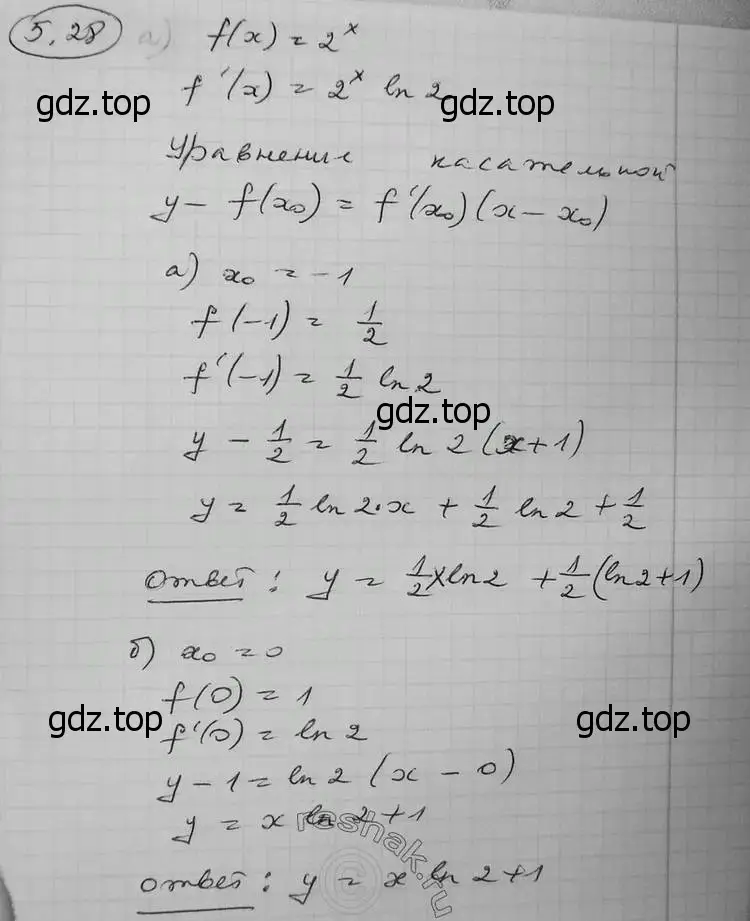 5.28 а) f(x) = 2^x
f'(x) = 2^x ln 2
gdz.top gdz.top
Уравнение касательной
y - f(x₀) = f'(x₀)(x - x₀)
а) x₀ = -1
f(-1) = 1/2
f'(-1) = 1/2 ln 2
gdz.top
y - 1/2 = 1/2 ln 2 (x+1)
y = 1/2 ln 2·x + 1/2 ln 2 + 1/2
ответ: y = 1/2 x ln 2 + 1/2 (ln 2+1)
б) x₀ = 0
f(0) = 1
gdz.top gdz.top
f'(0) = ln 2
y - 1 = ln 2 (x - 0)
y = x ln 2 + 1
reshak.ru
ответ: y = x ln 2 + 1